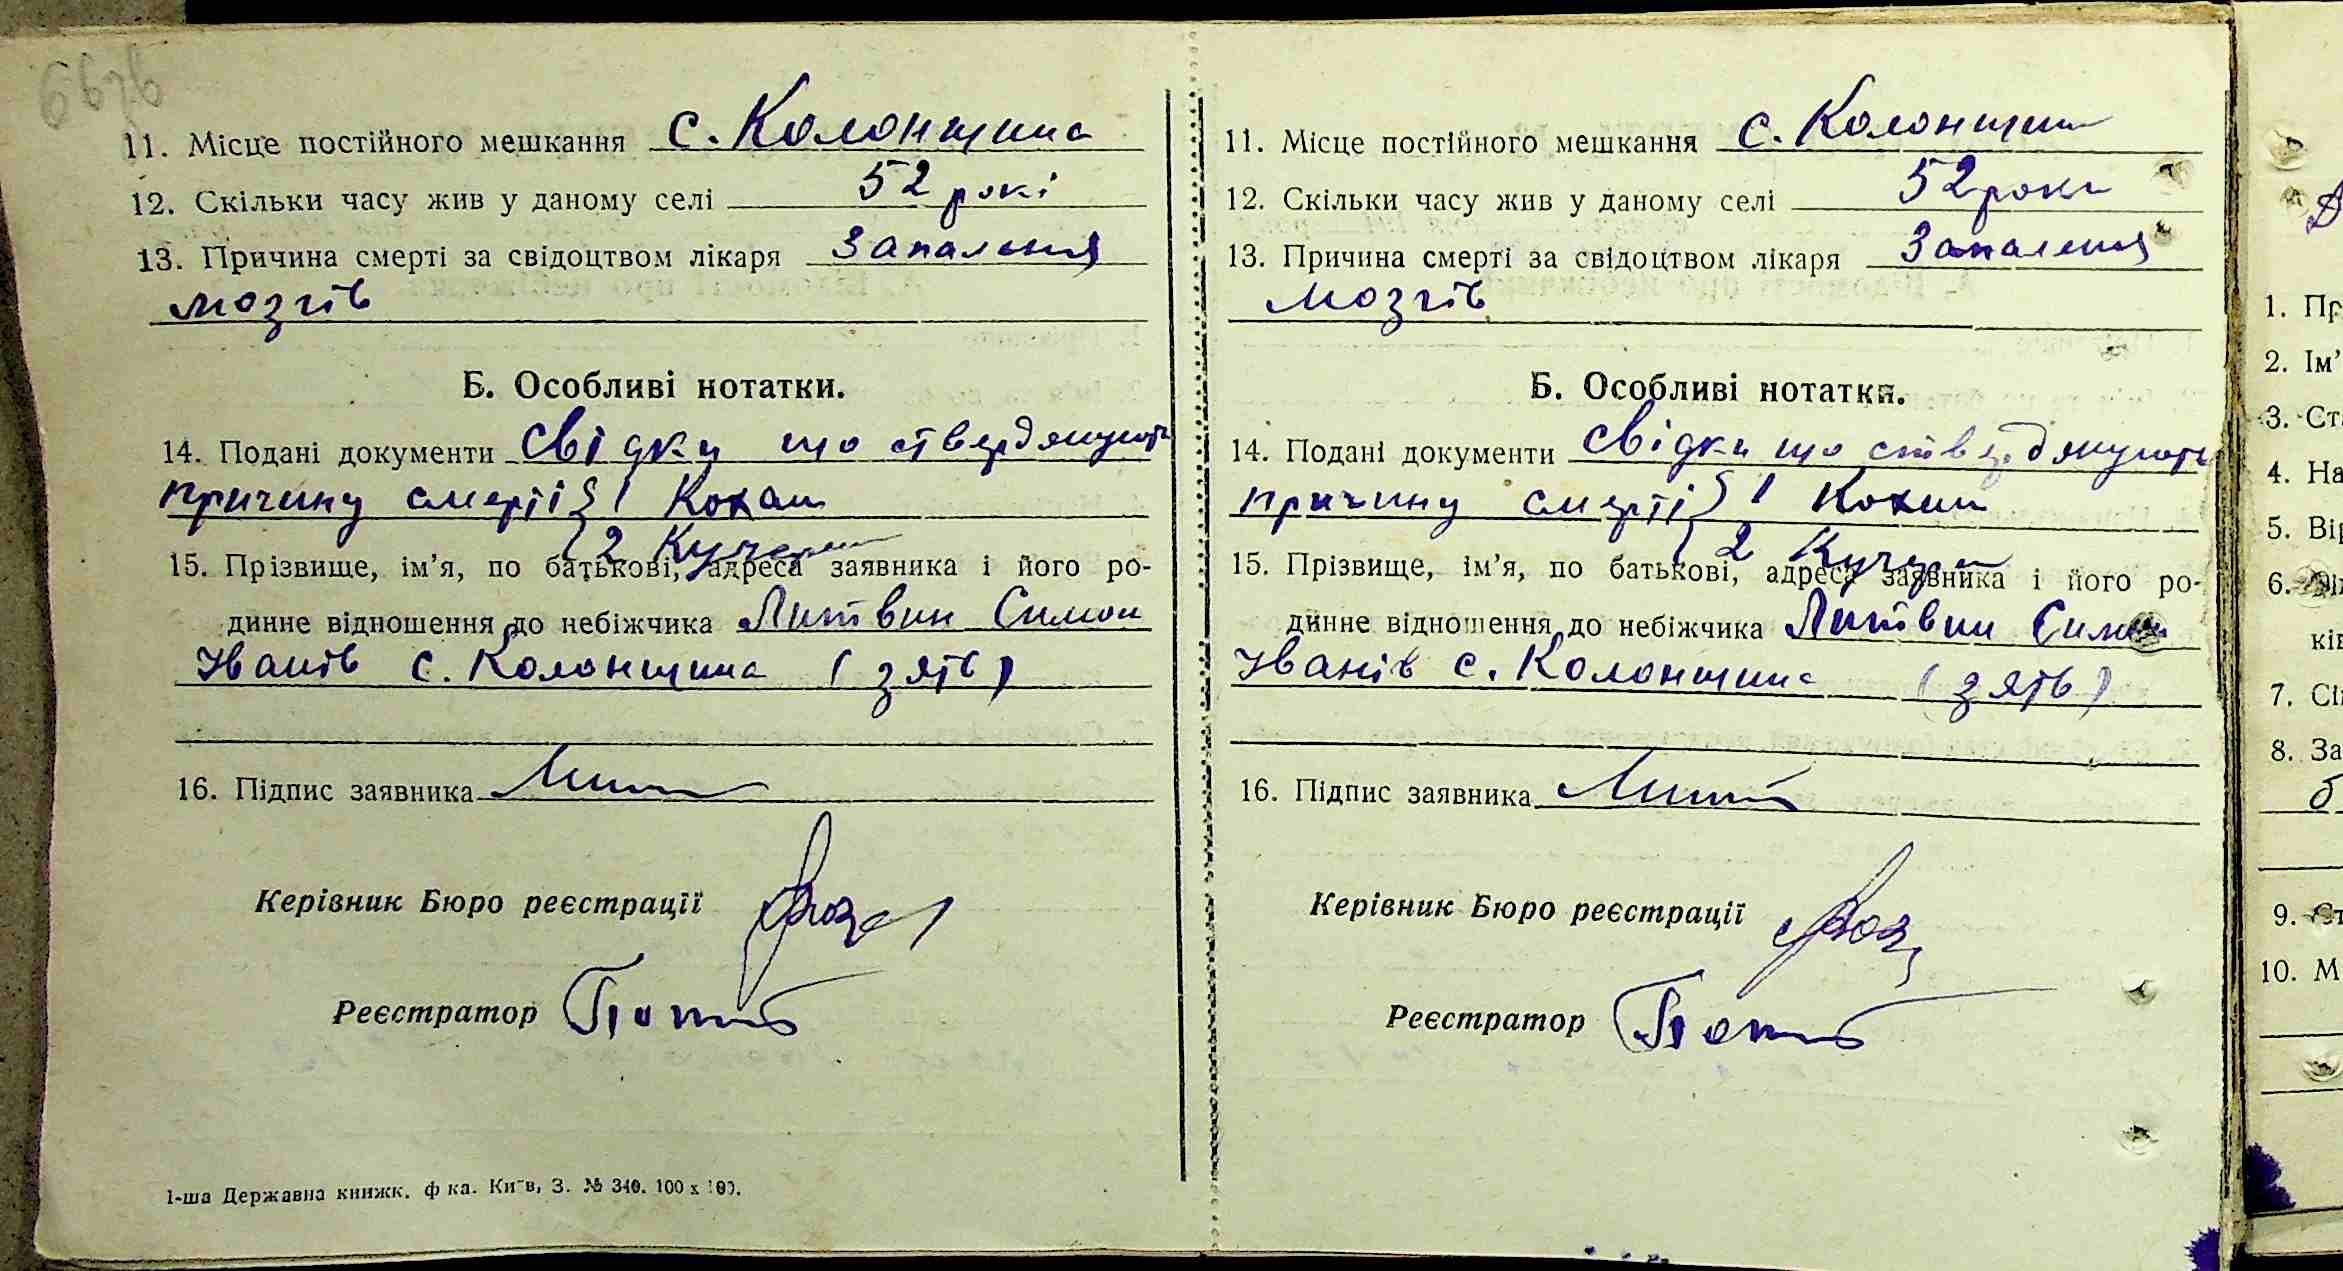 11. Місце постійного мешкання с. Колонщина
12. Скільки часу жив у даному селі 52 рокі
13. Причина смерті за свідоцтвом лікаря Запалення
мозгів
Б. Особливі нотатки.
14. Подані документи свідки що ствердякують
причину смерті } 1 Кохан
2 Кучерен
15. Прізвище, ім'я, по батькові, адреса заявника і його ро-
динне відношення до небіжчика Литвин Симон
Іванів с. Колонщина (зять)
16. Підпис заявника
Керівник Бюро реєстрації
Реєстратор
1-ша Державна книжк. ф ка. Київ, З. № 340. 100 x 100.
11. Місце постійного мешкання с. Колонщина
12. Скільки часу жив у даному селі 52 роки
13. Причина смерті за свідоцтвом лікаря Запалення
мозгів
Б. Особливі нотатки.
14. Подані документи свідки що ствердякують
причину смерті } 1 Кохан
2 Кучерен
15. Прізвище, ім'я, по батькові, адреса заявника і його ро-
динне відношення до небіжчика Литвин Симон
Іванів с. Колонщина (зять)
16. Підпис заявника
Керівник Бюро реєстрації
Реєстратор
1. Пр
2. Ім'
3. Ст
4. На
5. Вір
6.
кіл
7. Сі
8. За
б
9. Ст
10. М